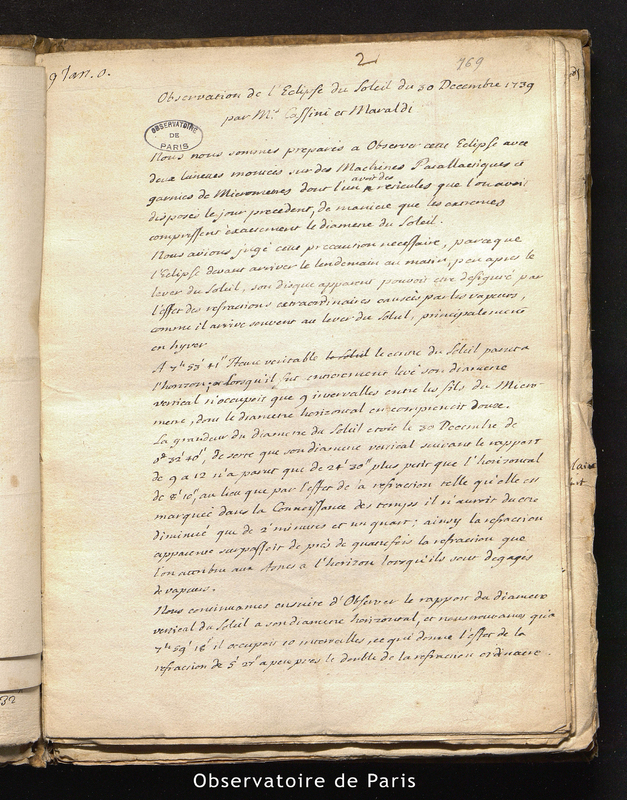 9 Jan. 0.
2
169
Observation de l'Eclipse du Soleil du 30 Decembre 1739
par Mrs Cassini et Maraldi
OBSERVATOIRE
DE
PARIS
Nous nous sommes preparés a Observer cette Eclipse avec
deux lunettes montées sur des Machines Parallactiques et
garnies de Micrometres dont l'un avoit des reticules que l'on avoit
disposés le jour precedent, de maniere que les extremes
comprissent exactement le diametre du Soleil.
Nous avions jugé cette precaution necessaire, parceque
l'Eclipse devant arriver le lendemain au matin, peu apres le
lever du Soleil, son disque apparent pouvoit etre defiguré par
l'effet des refractions extraordinaires causées par les vapeurs,
comme il arrive souvent au lever du Soleil, principalement
en hyver
A 7h 53' 41" Heure veritable le soleil le centre du Soleil parut a
l'horizon, et lorsqu'il fut entierement levé son diametre
vertical n'occupoit que 9 intervalles entre les fils du Micro-
metre, dont le diametre horizontal en comprenoit douze.
La grandeur du diametre du Soleil etoit le 30 Decembre de
0° 32' 40", de sorte que son diametre vertical suivant le rapport
de 9 a 12 n'a parut que de 24' 30" plus petit que l'horizontal
de 8' 10", au lieu que par l'effet de la refraction telle qu'elle est
marquée dans la Connoissance des temps il n'auroit du etre
diminué que de 2 minutes et un quart; ainsy la refraction
apparente surpassoit de près de quatre fois la refraction que
l'on attribue aux Astres a l'horizon lorsqu'ils sont degagés
de vapeurs.
Nous continuames ensuite d'Observer le rapport du diametre
vertical du Soleil a son diametre horizontal, et nous trouvames qu'a
7h 59' 18" il occupoit 10 intervalles, ce qui donne l'effet de la
refraction de 5' 27" a peu près le double de la refraction ordinaire.
Observatoire de Paris